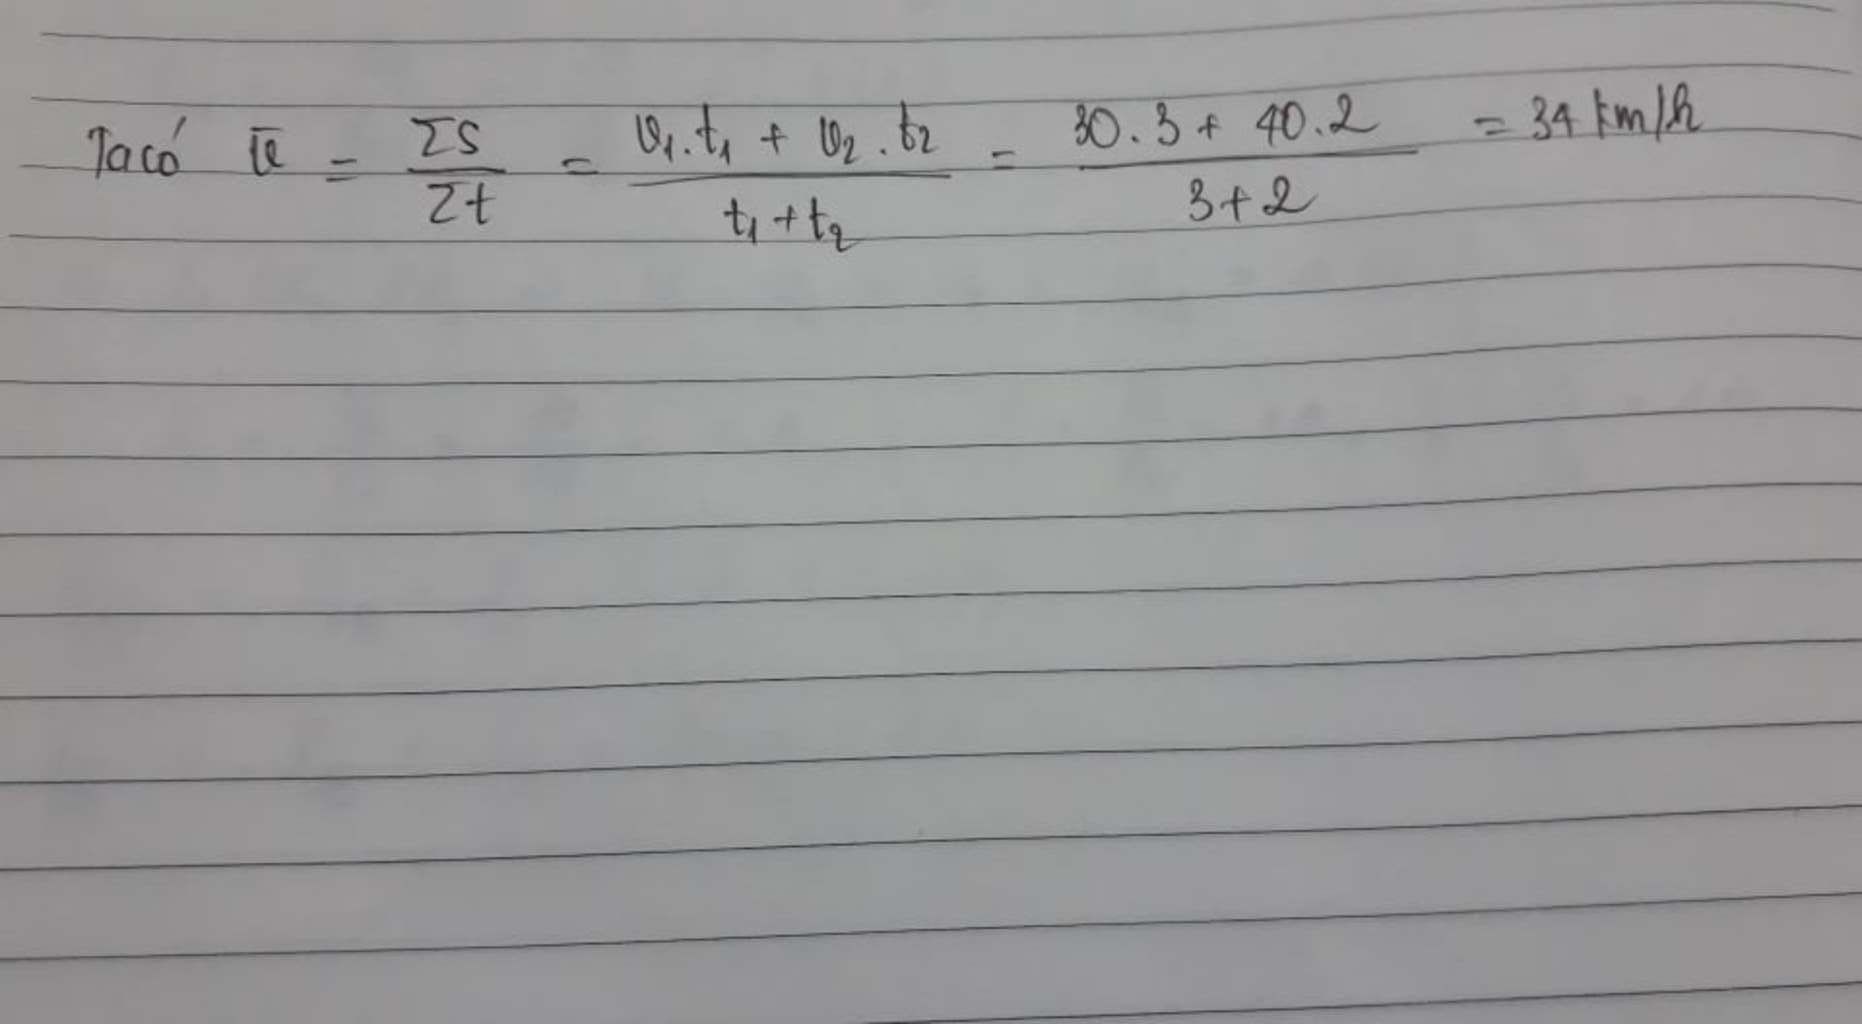 Ta có v̄ = ΣS/Σt = (v₁.t₁ + v₂.t₂)/(t₁+t₂) = (30.3+ 40.2)/(3+2) = 34 km/h